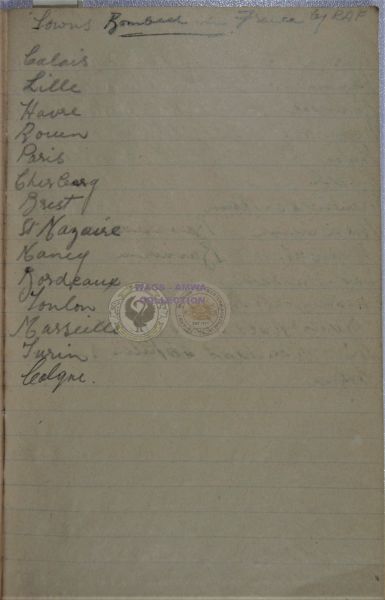 Towns Bombed in France by RAF
Calais
Lille
Havre
Rouen
Paris
Cherbourg
Brest
St Nazaire
Nancy
Bordeaux
Toulon
WAGS - AMWA
COLLECTION
Marseille
Turin
Cologne.